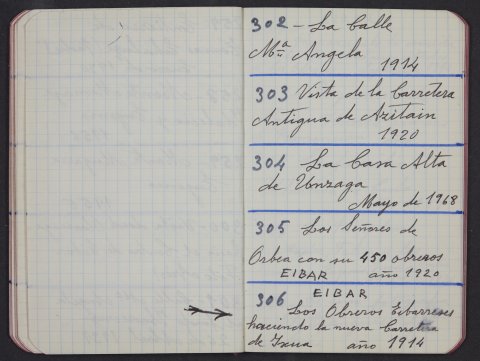 302 - La Calle
Mª Angela
1914
303 Vista de la Carretera
Antigua de Azitain
1920
304 La Casa Alta
de Unzaga
Mayo de 1968
305 Los Señores de
Orbea con su 450 obreros
EIBAR año 1920
306 EIBAR
Los Obreros Eibarreses
haciendo la nueva Carretera
de Ixua año 1914